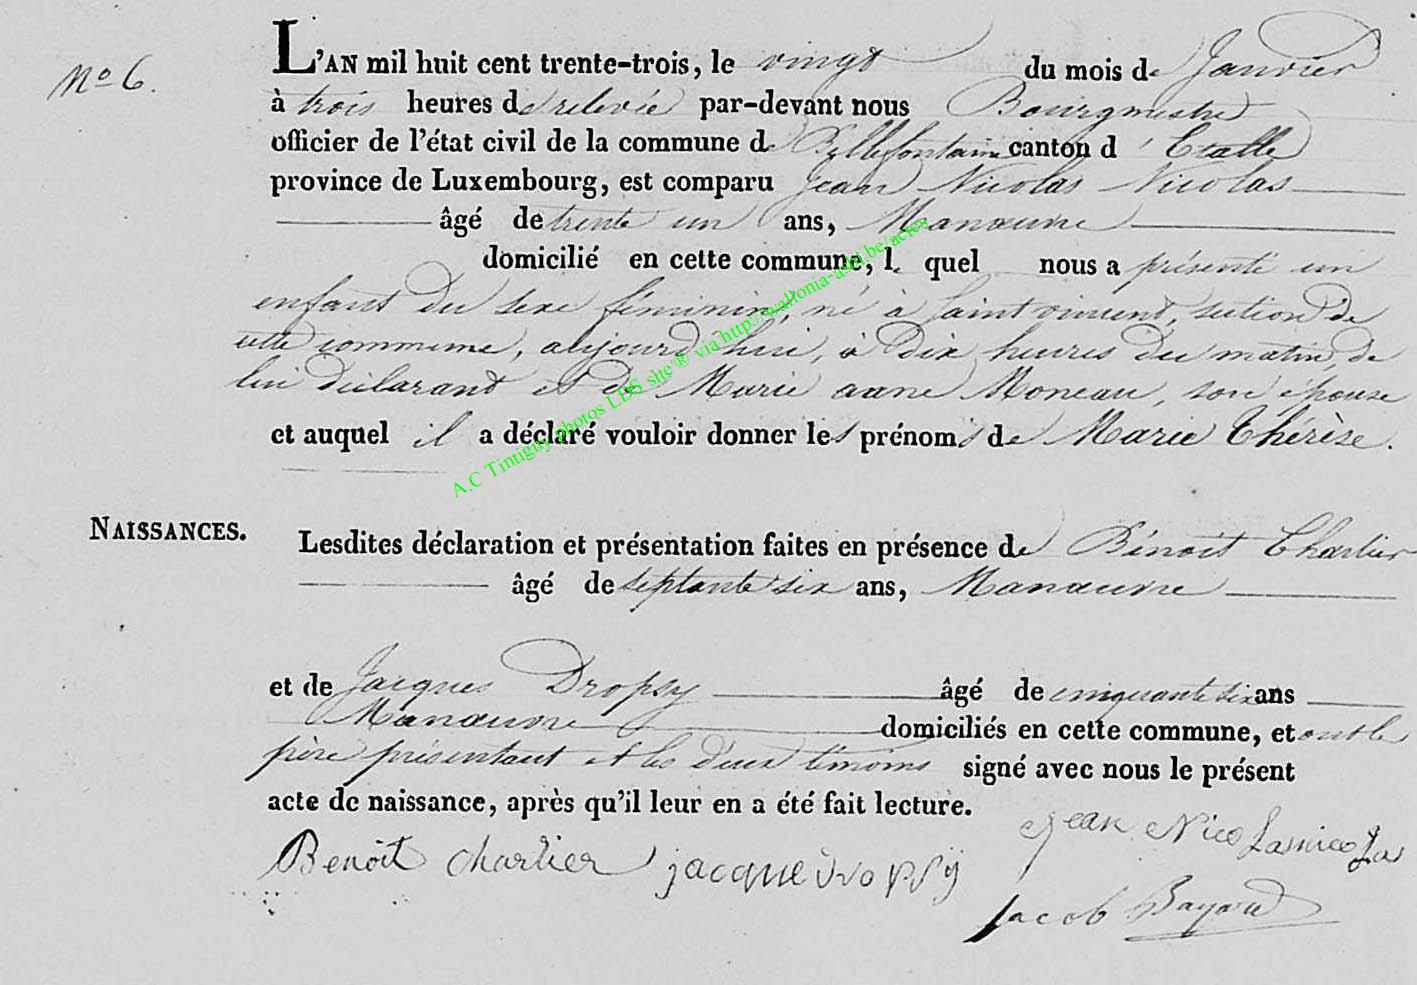 No 6.
L'AN mil huit cent trente-trois, le vingt du mois de Janvier
à trois heures de relevée par-devant nous Bourgmestre
officier de l'état civil de la commune de Bellefontaine canton d'Etalle
province de Luxembourg, est comparu Jean Nicolas Nicolas
âgé de trente un ans, Manœuvre
domicilié en cette commune, le quel nous a présenté un
enfant du sexe féminin, né à Saintvincent, section de
cette commune, aujourd'hui, à dix heures du matin, de
lui déclarant et de Marie anne Moneau, son épouse
et auquel il a déclaré vouloir donner les prénoms de Marie Thérèse.
A.C Tintigny photos LDS site ® via http://wallonia-asbl.be/actes
NAISSANCES.
Lesdites déclaration et présentation faites en présence de Bénoit Charlier
âgé de septante six ans, Manœuvre
et de Jacques Dropsy âgé de cinquante six ans
Manœuvre domiciliés en cette commune, et ont le
père présentant et les deux témoins signé avec nous le présent
acte de naissance, après qu'il leur en a été fait lecture.
Jean Nicolas nicolas
Benoit charlier jacque dropsÿ
Jacob Bayard